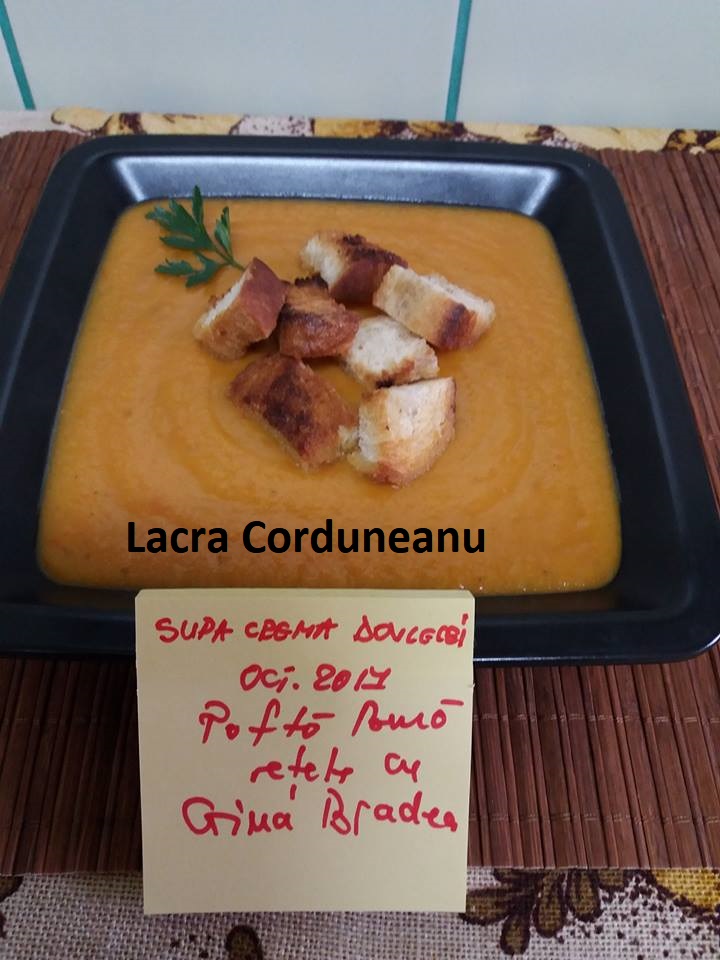 Lacra Corduneanu
SUPA CREMA DOVLECEI
OCT. 2017
Poftă Bună
rețete cu
Gina Bradea